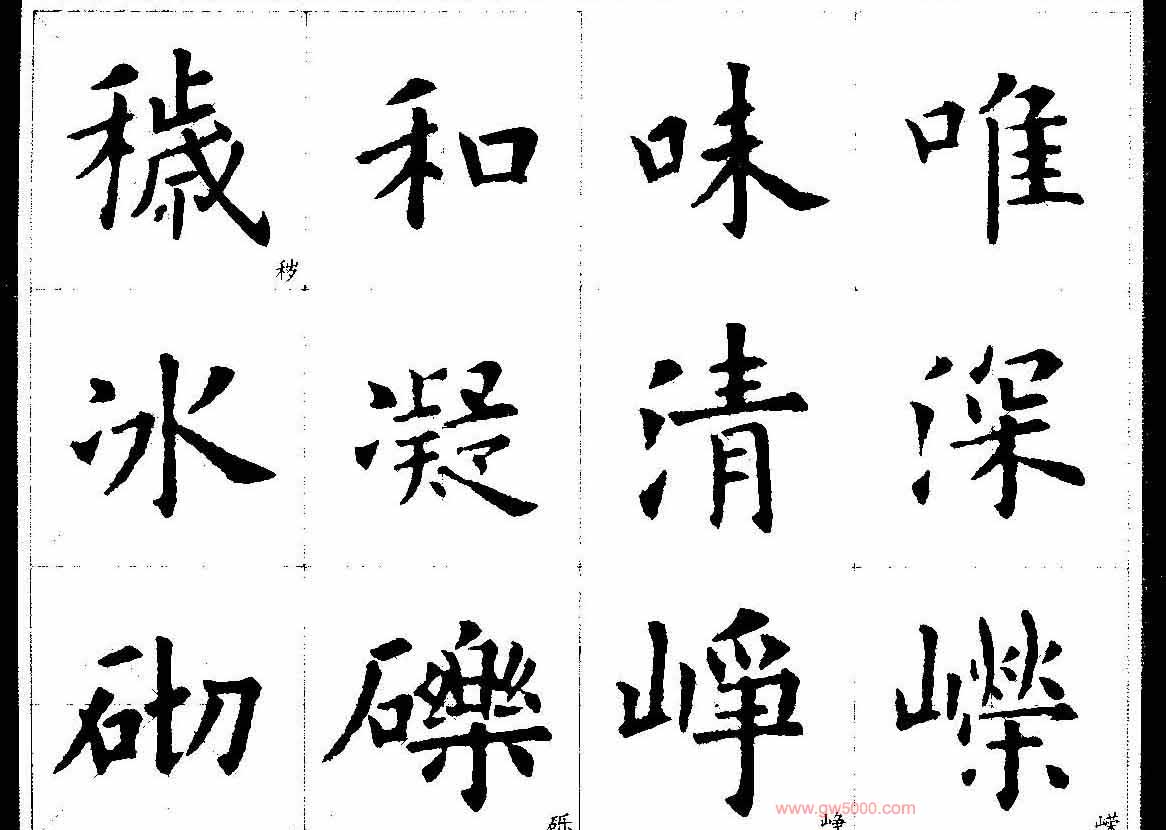 穢 和 味 唯
秽
冰 凝 清 深
砌 礫 崢 嶸
砾 峥 嵘
www.gw5000.com